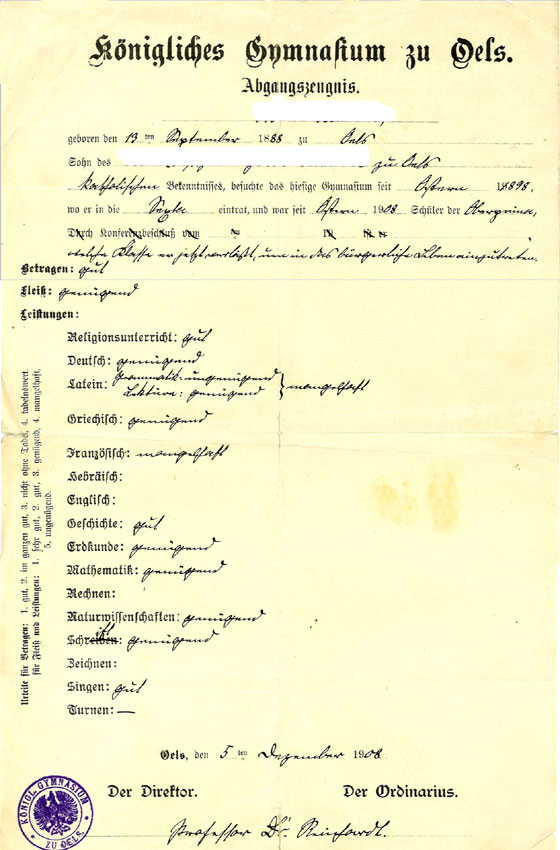 Königliches Gymnasium zu Oels.
Abgangszeugnis.
geboren den 13 ten September 1888 zu Oels
Sohn des zu Oels
katholischen Bekenntnisses, besuchte das hiesige Gymnasium seit Ostern 1898,
wo er in die Sexta eintrat, und war seit Ostern 1908 Schüler der Oberprima,
Durch Konferenzbeschluß vom ten 19 ist er
welche Klasse er jetzt verläßt, um in das bürgerliche Leben einzutreten.
Betragen: gut
Fleiß: genügend
Leistungen:
Religionsunterricht: gut
Deutsch: genügend
Latein: Grammatik: ungenügend
Lektüre: genügend } mangelhaft
Griechisch: genügend
Französisch: mangelhaft
Hebräisch:
Englisch:
Geschichte: gut
Erdkunde: genügend
Mathematik: genügend
Rechnen:
Naturwissenschaften: genügend
Schrift: genügend
Zeichnen:
Singen: gut
Turnen: —
Urteile für Betragen: 1. gut, 2. im ganzen gut, 3. nicht ohne Tadel, 4. tadelnswert.
für Fleiß und Leistungen: 1. sehr gut, 2. gut, 3. genügend, 4. mangelhaft,
5. ungenügend.
Oels, den 5 ten Dezember 1908
Der Direktor. Der Ordinarius.
KÖNIGL. GYMNASIUM
ZU OELS.
Professor Dr. Reinhardt.